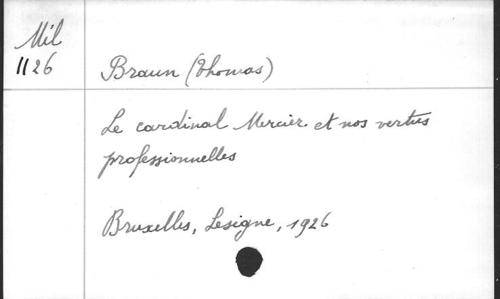 Mil
1126
Braun (Thomas)
Le cardinal Mercier et nos vertus
professionnelles
Bruxelles, Lesigne, 1926